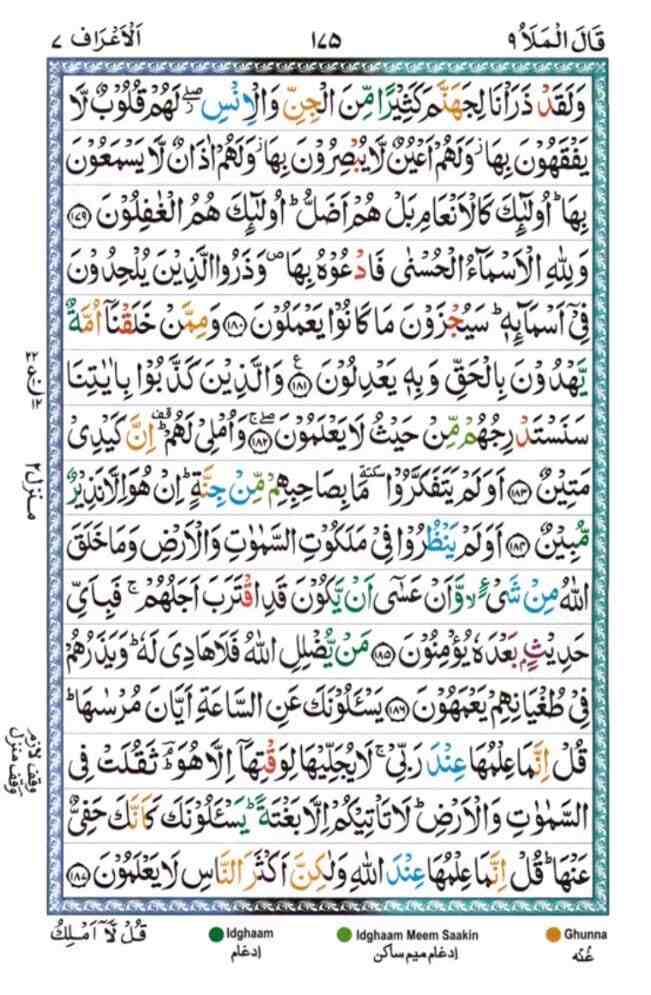 قَالَ الْمَلَأُ ٩ ١٧٥ اَلْاَعْرَاف ٧
وَلَقَدْ ذَرَاْنَا لِجَهَنَّمَ كَثِيْرًا مِّنَ الْجِنِّ وَالْاِنْسِ ۖ لَهُمْ قُلُوْبٌ لَّا
يَفْقَهُوْنَ بِهَا ؗ وَلَهُمْ اَعْيُنٌ لَّا يُبْصِرُوْنَ بِهَا ؗ وَلَهُمْ اٰذَانٌ لَّا يَسْمَعُوْنَ
بِهَا ؕ اُولٰٓئِكَ كَالْاَنْعَامِ بَلْ هُمْ اَضَلُّ ؕ اُولٰٓئِكَ هُمُ الْغٰفِلُوْنَ ۝١٧٩
وَلِلّٰهِ الْاَسْمَآءُ الْحُسْنٰى فَادْعُوْهُ بِهَا ۪ وَذَرُوا الَّذِيْنَ يُلْحِدُوْنَ
فِىْٓ اَسْمَآئِهٖ ؕ سَيُجْزَوْنَ مَا كَانُوْا يَعْمَلُوْنَ ۝١٨٠ وَمِمَّنْ خَلَقْنَآ اُمَّةٌ
يَّهْدُوْنَ بِالْحَقِّ وَبِهٖ يَعْدِلُوْنَ ۝١٨١ ع وَالَّذِيْنَ كَذَّبُوْا بِاٰيٰتِنَا
سَنَسْتَدْرِجُهُمْ مِّنْ حَيْثُ لَا يَعْلَمُوْنَ ۝١٨٢ وَاُمْلِىْ لَهُمْ ؕ اِنَّ كَيْدِىْ
مَتِيْنٌ ۝١٨٣ اَوَلَمْ يَتَفَكَّرُوْا سكتة مَا بِصَاحِبِهِمْ مِّنْ جِنَّةٍ ؕ اِنْ هُوَ اِلَّا نَذِيْرٌ
مُّبِيْنٌ ۝١٨٤ اَوَلَمْ يَنْظُرُوْا فِىْ مَلَكُوْتِ السَّمٰوٰتِ وَالْاَرْضِ وَمَا خَلَقَ
اللّٰهُ مِنْ شَىْءٍ ۙ وَّاَنْ عَسٰٓى اَنْ يَّكُوْنَ قَدِ اقْتَرَبَ اَجَلُهُمْ ۚ فَبِاَىِّ
حَدِيْثٍۭ بَعْدَهٗ يُؤْمِنُوْنَ ۝١٨٥ مَنْ يُّضْلِلِ اللّٰهُ فَلَا هَادِىَ لَهٗ ؕ وَيَذَرُهُمْ
فِىْ طُغْيَانِهِمْ يَعْمَهُوْنَ ۝١٨٦ يَسْـَٔلُوْنَكَ عَنِ السَّاعَةِ اَيَّانَ مُرْسٰىهَا ؕ
قُلْ اِنَّمَا عِلْمُهَا عِنْدَ رَبِّىْ ۚ لَا يُجَلِّيْهَا لِوَقْتِهَآ اِلَّا هُوَ ؔۘ ثَقُلَتْ فِى
السَّمٰوٰتِ وَالْاَرْضِ ؕ لَا تَاْتِيْكُمْ اِلَّا بَغْتَةً ؕ يَسْـَٔلُوْنَكَ كَاَنَّكَ حَفِىٌّ
عَنْهَا ؕ قُلْ اِنَّمَا عِلْمُهَا عِنْدَ اللّٰهِ وَلٰكِنَّ اَكْثَرَ النَّاسِ لَا يَعْلَمُوْنَ
٢٢
ع
١٢
منزل ٢
وقف لازم
وقف منزل
قُلْ لَّآ اَمْلِكُ
Idghaam Idghaam Meem Saakin Ghunna
ادغام ادغام میم ساکن غُنّه